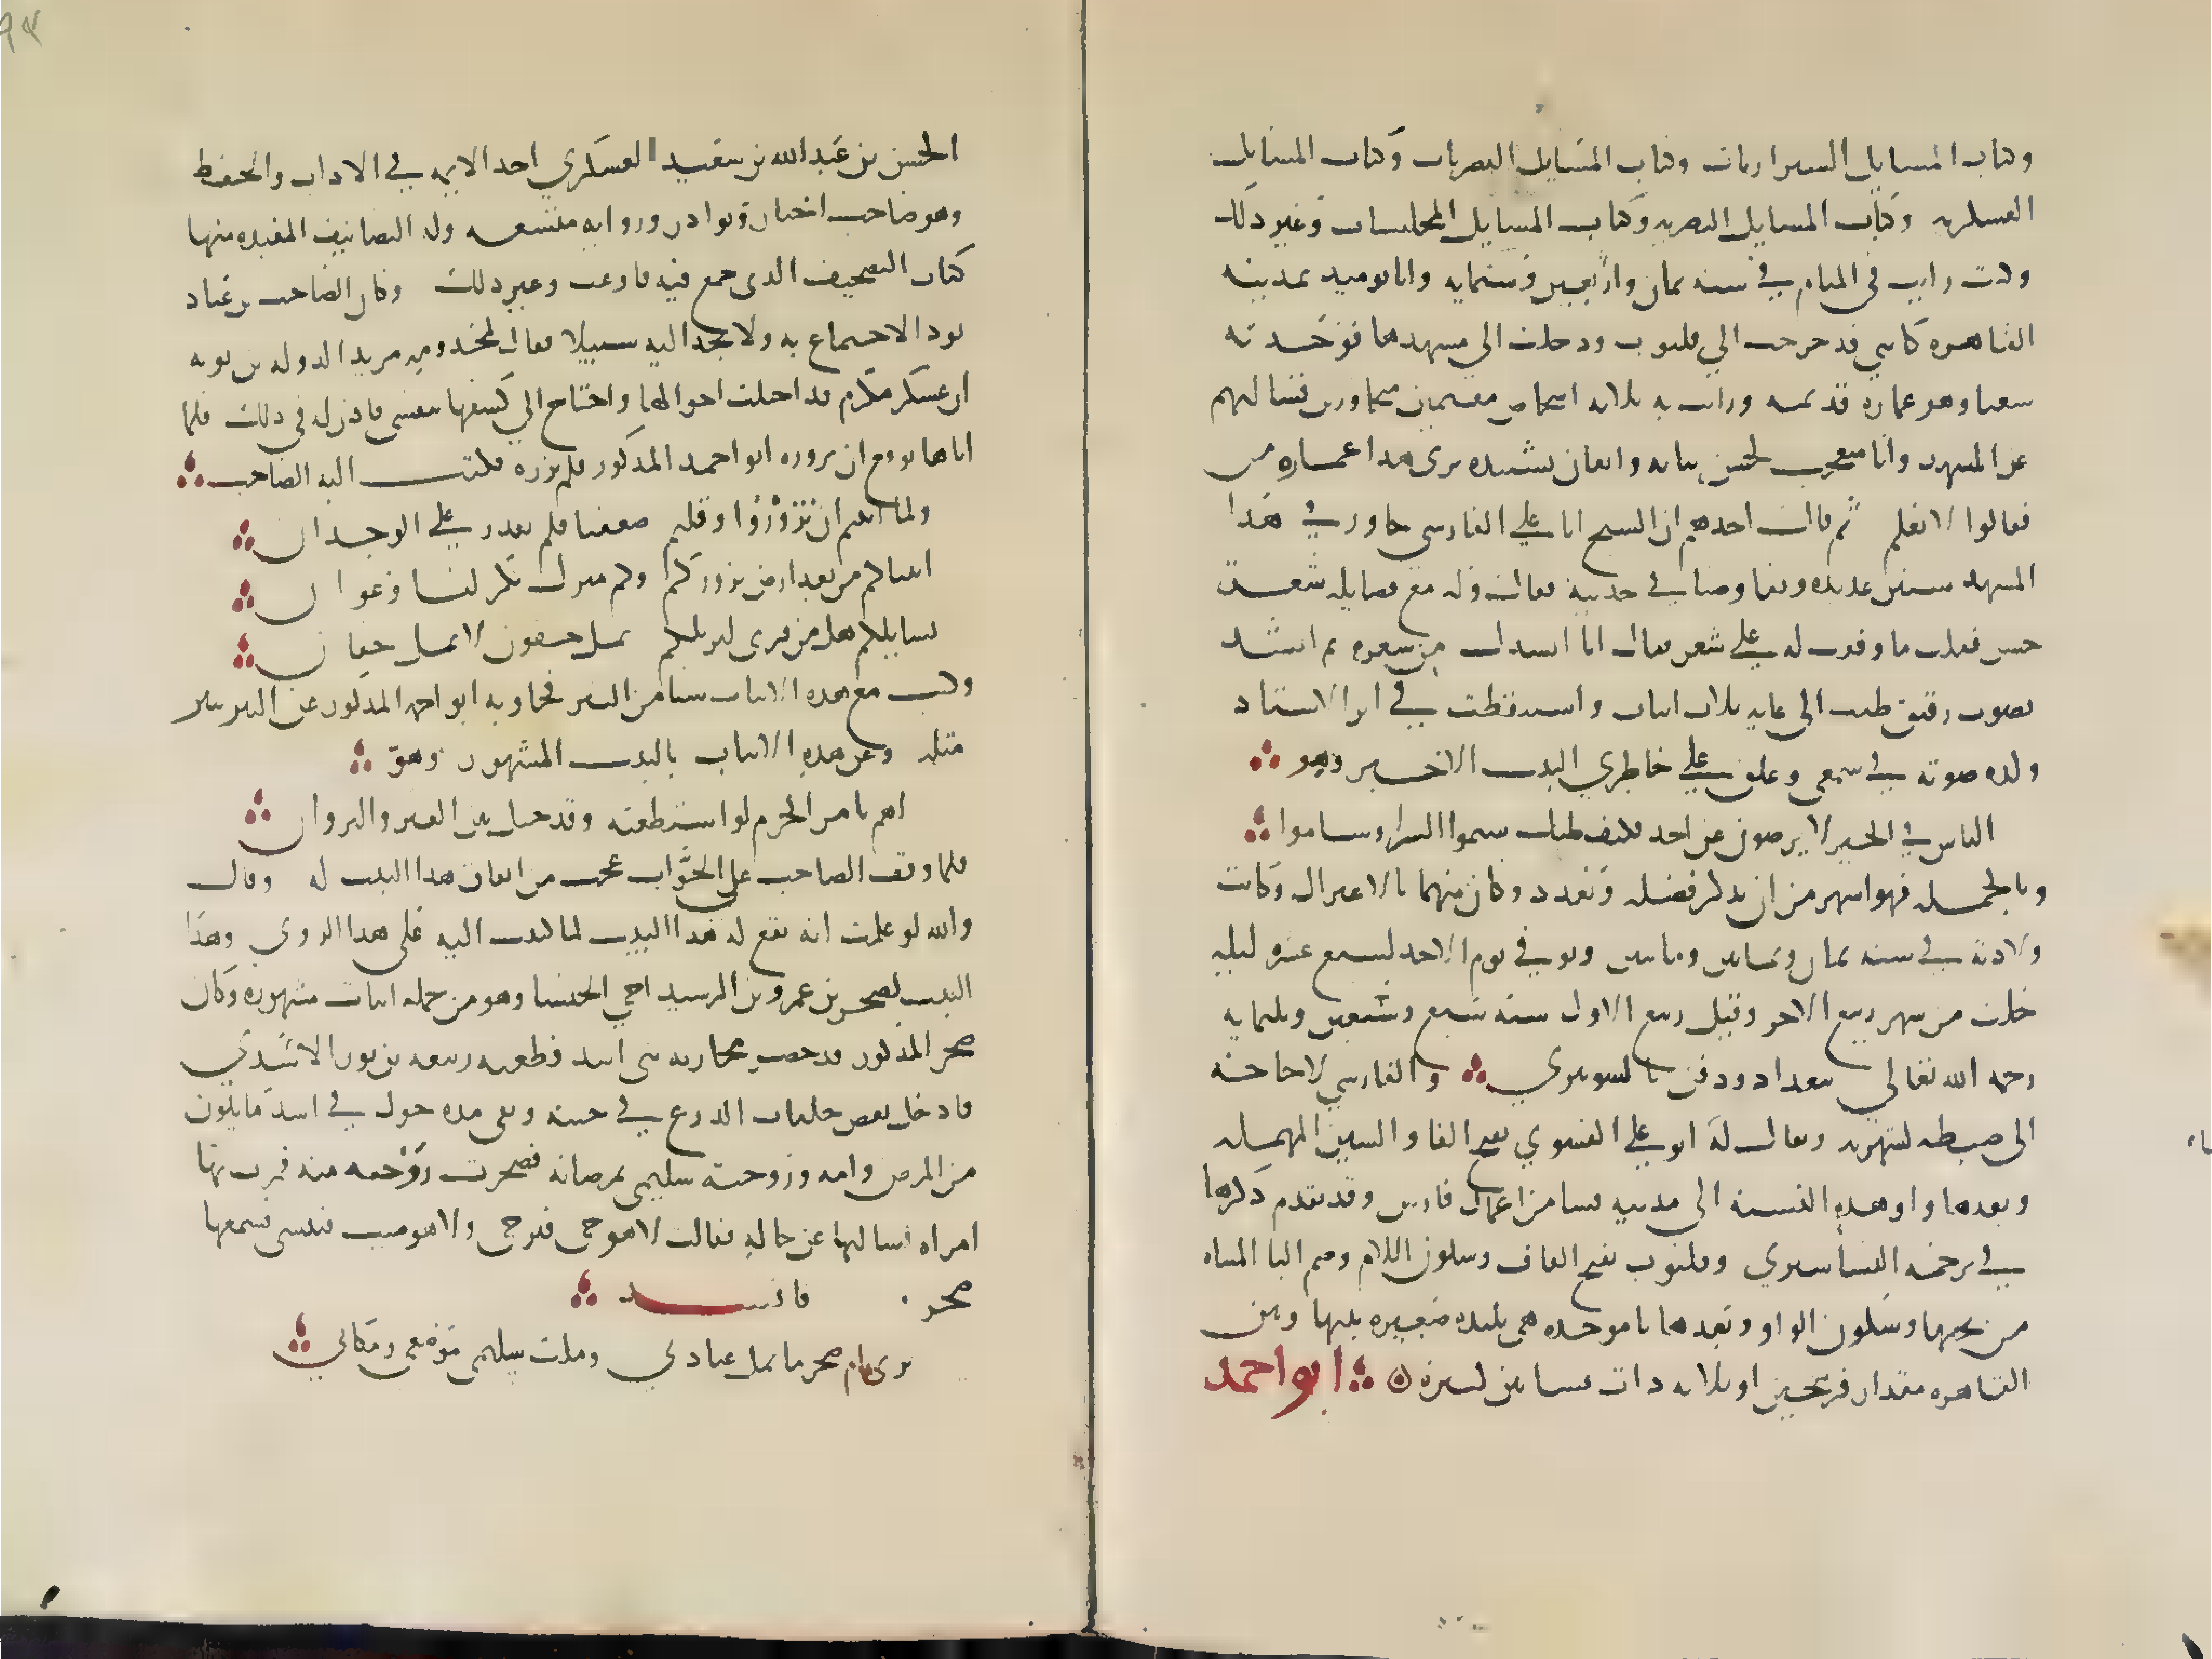 وكتاب المسايل الشيرازيات وكتاب المسايل البصريات وكتاب المسايل
العسكريه وكتاب المسايل البصريه وكتاب المسايل المجلسيات وغير ذلك
وكنت رايت في المنام في سنه ثمان واربعين وستمايه وانا يوميد بمدينه
القاهره كاني قد خرجت الي قليوب ودخلت الى مشهد بها فوجدته
شعثا وهو عماره قديمه ورايت به ثلاثه اشخاص مقيمين مجاورين فسالتهم
عن المشهد وانا متعجب لحسن بنايه واتقان تشييده ترى هذا عماره من
فقالوا لا نعلم ثم قال احدهم ان الشيخ ابا علي الفارسي جاور في هذا
المشهد سنين عديده وتفاوضنا في حديثه فقال وله مع فضايله شعر
حسن فقلت ما وقفت له علي شعر فقال انا انشدك من شعره ثم انشد
بصوت رقيق طيب الى غايه ثلاث ابيات واستيقظت في اثر الانشاد
ولذه صوته في سمعي وعلق علي خاطري البيت الاخير وهو
الناس في الخير لا يرضون عن احد فكيف ظنك سيموا الشر او ساموا
وبالجمله فهو اشهر من ان يذكر فضله ويعدد وكان متهما بالاعتزال وكانت
ولادته في سنه ثمان وثمانين ومايتين وتوفي يوم الاحد لسبع عشره ليله
خلت من شهر ربيع الاخر وقيل ربيع الاول سنه سبع وسبعين وثلثمايه
رحمه الله تعالي ببغداد ودفن بالشونيزي والفارسي لا حاجه
الى ضبطه لشهرته ويقال له ابو علي الفسوي بفتح الفا والسين المهمله
وبعدها واو هذه النسبه الى مدينه فسا من اعمال فارس وقد تقدم ذكرها
في ترجمه البساسيري وقليوب بفتح القاف وسكون اللام وضم اليا المثناه
من تحتها وسكون الواو وبعدها با موحده هي بليده صغيره بينها وبين
القاهره مقدار فرسخين او ثلاثه ذات بساتين كثيره ابو احمد
الحسن بن عبد الله بن سعيد العسكري احد الايمه في الاداب والحفظ
وهو صاحب اخبار ونوادر وروايه متسعه وله التصانيف المفيده منها
كتاب التصحيف الذي جمع فيه فاوعب وغير ذلك وكان الصاحب بن عباد
يود الاجتماع به ولا يجد اليه سبيلا فقال لمخدومه مويد الدوله بن بويه
ان عسكر مكرم قد اختلت احوالها واحتاج الي كشفها بنفسي فاذن له في ذلك فلما
اتاها توقع ان يزوره ابو احمد المذكور فلم يزره فكتب اليه الصاحب
ولما ابيتم ان تزوروا وقلتم ضعفنا فلم نقدر علي الوخدان
اتيناكم من بعد ارض نزوركم وكم منزل بكر لنا وعوان
نسايلكم هل من قرى لنزيلكم بمل جفون لا بمل جفان
وكتب مع هذه الابيات شيا من النثر فجاوبه ابو احمد المذكور عن النثر بنثر
مثله وعن هذه الابيات بالبيت المشهور وهو
اهم بامر الحزم لو استطيعه وقد حيل بين العير والنزوان
فلما وقف الصاحب على الجواب عجب من اتفاق هذا البيت له وقال
والله لو علمت انه يقع له هذا البيت لما كتبت اليه على هذا الروي وهذا
البيت لصخر بن عمرو بن الشريد اخي الخنسا وهو من جمله ابيات مشهوره وكان
صخر المذكور قد حضر محاربه بني اسد فطعنه ربيعه بن ثور الاسدي
فادخل بعض حلقات الدرع في جنبه وبقي مده حول في اشد ما يكون
من المرض وامه وزوجته سليمى تمرضانه فضجرت زوجته منه فمرت بها
امراه فسالتها عن حاله فقالت لا هو حي فيرجى ولا هو ميت فينسى فسمعها
صخر فانشد
ارى ام صخر ما تمل عيادتي وملت سليمى موضعي ومكاني